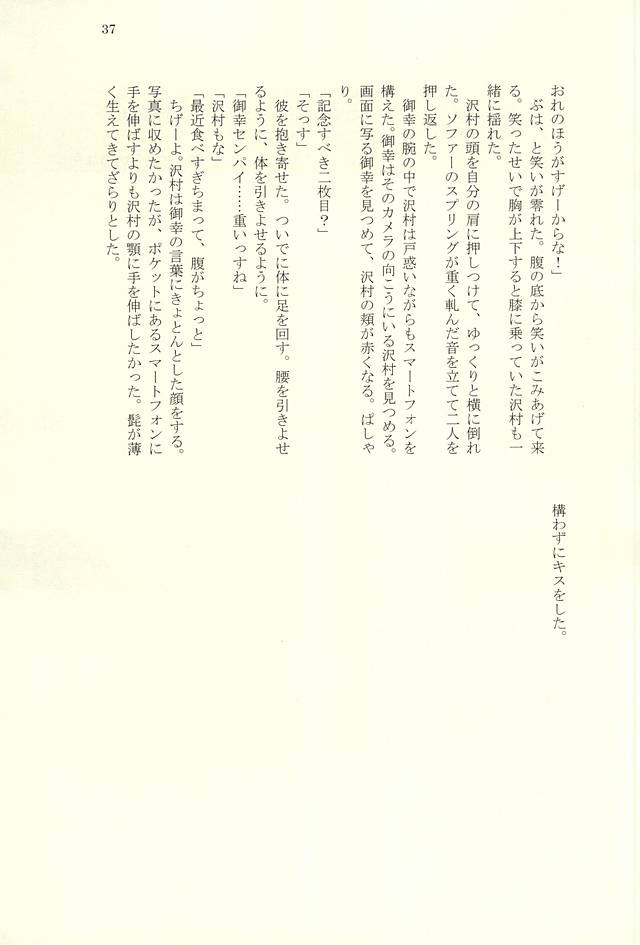 37
おれのほうがすげーからな！」
ぶは、と笑いが零れた。腹の底から笑いがこみあげて来
る。笑ったせいで胸が上下すると膝に乗っていた沢村も一
緒に揺れた。
沢村の頭を自分の肩に押しつけて、ゆっくりと横に倒れ
た。ソファーのスプリングが重く軋んだ音を立てて二人を
押し返した。
御幸の腕の中で沢村は戸惑いながらもスマートフォンを
構えた。御幸はそのカメラの向こうにいる沢村を見つめる。
画面に写る御幸を見つめて、沢村の頬が赤くなる。ぱしゃ
り。
「記念すべき二枚目？」
「そっす」
彼を抱き寄せた。ついでに体に足を回す。腰を引きよせ
るように、体を引きよせるように。
「御幸センパイ……重いっすね」
「沢村もな」
「最近食べすぎちまって、腹がちょっと」
ちげーよ。沢村は御幸の言葉にきょとんとした顔をする。
写真に収めたかったが、ポケットにあるスマートフォンに
手を伸ばすよりも沢村の顎に手を伸ばしたかった。髭が薄
く生えてきてざらりとした。
構わずにキスをした。